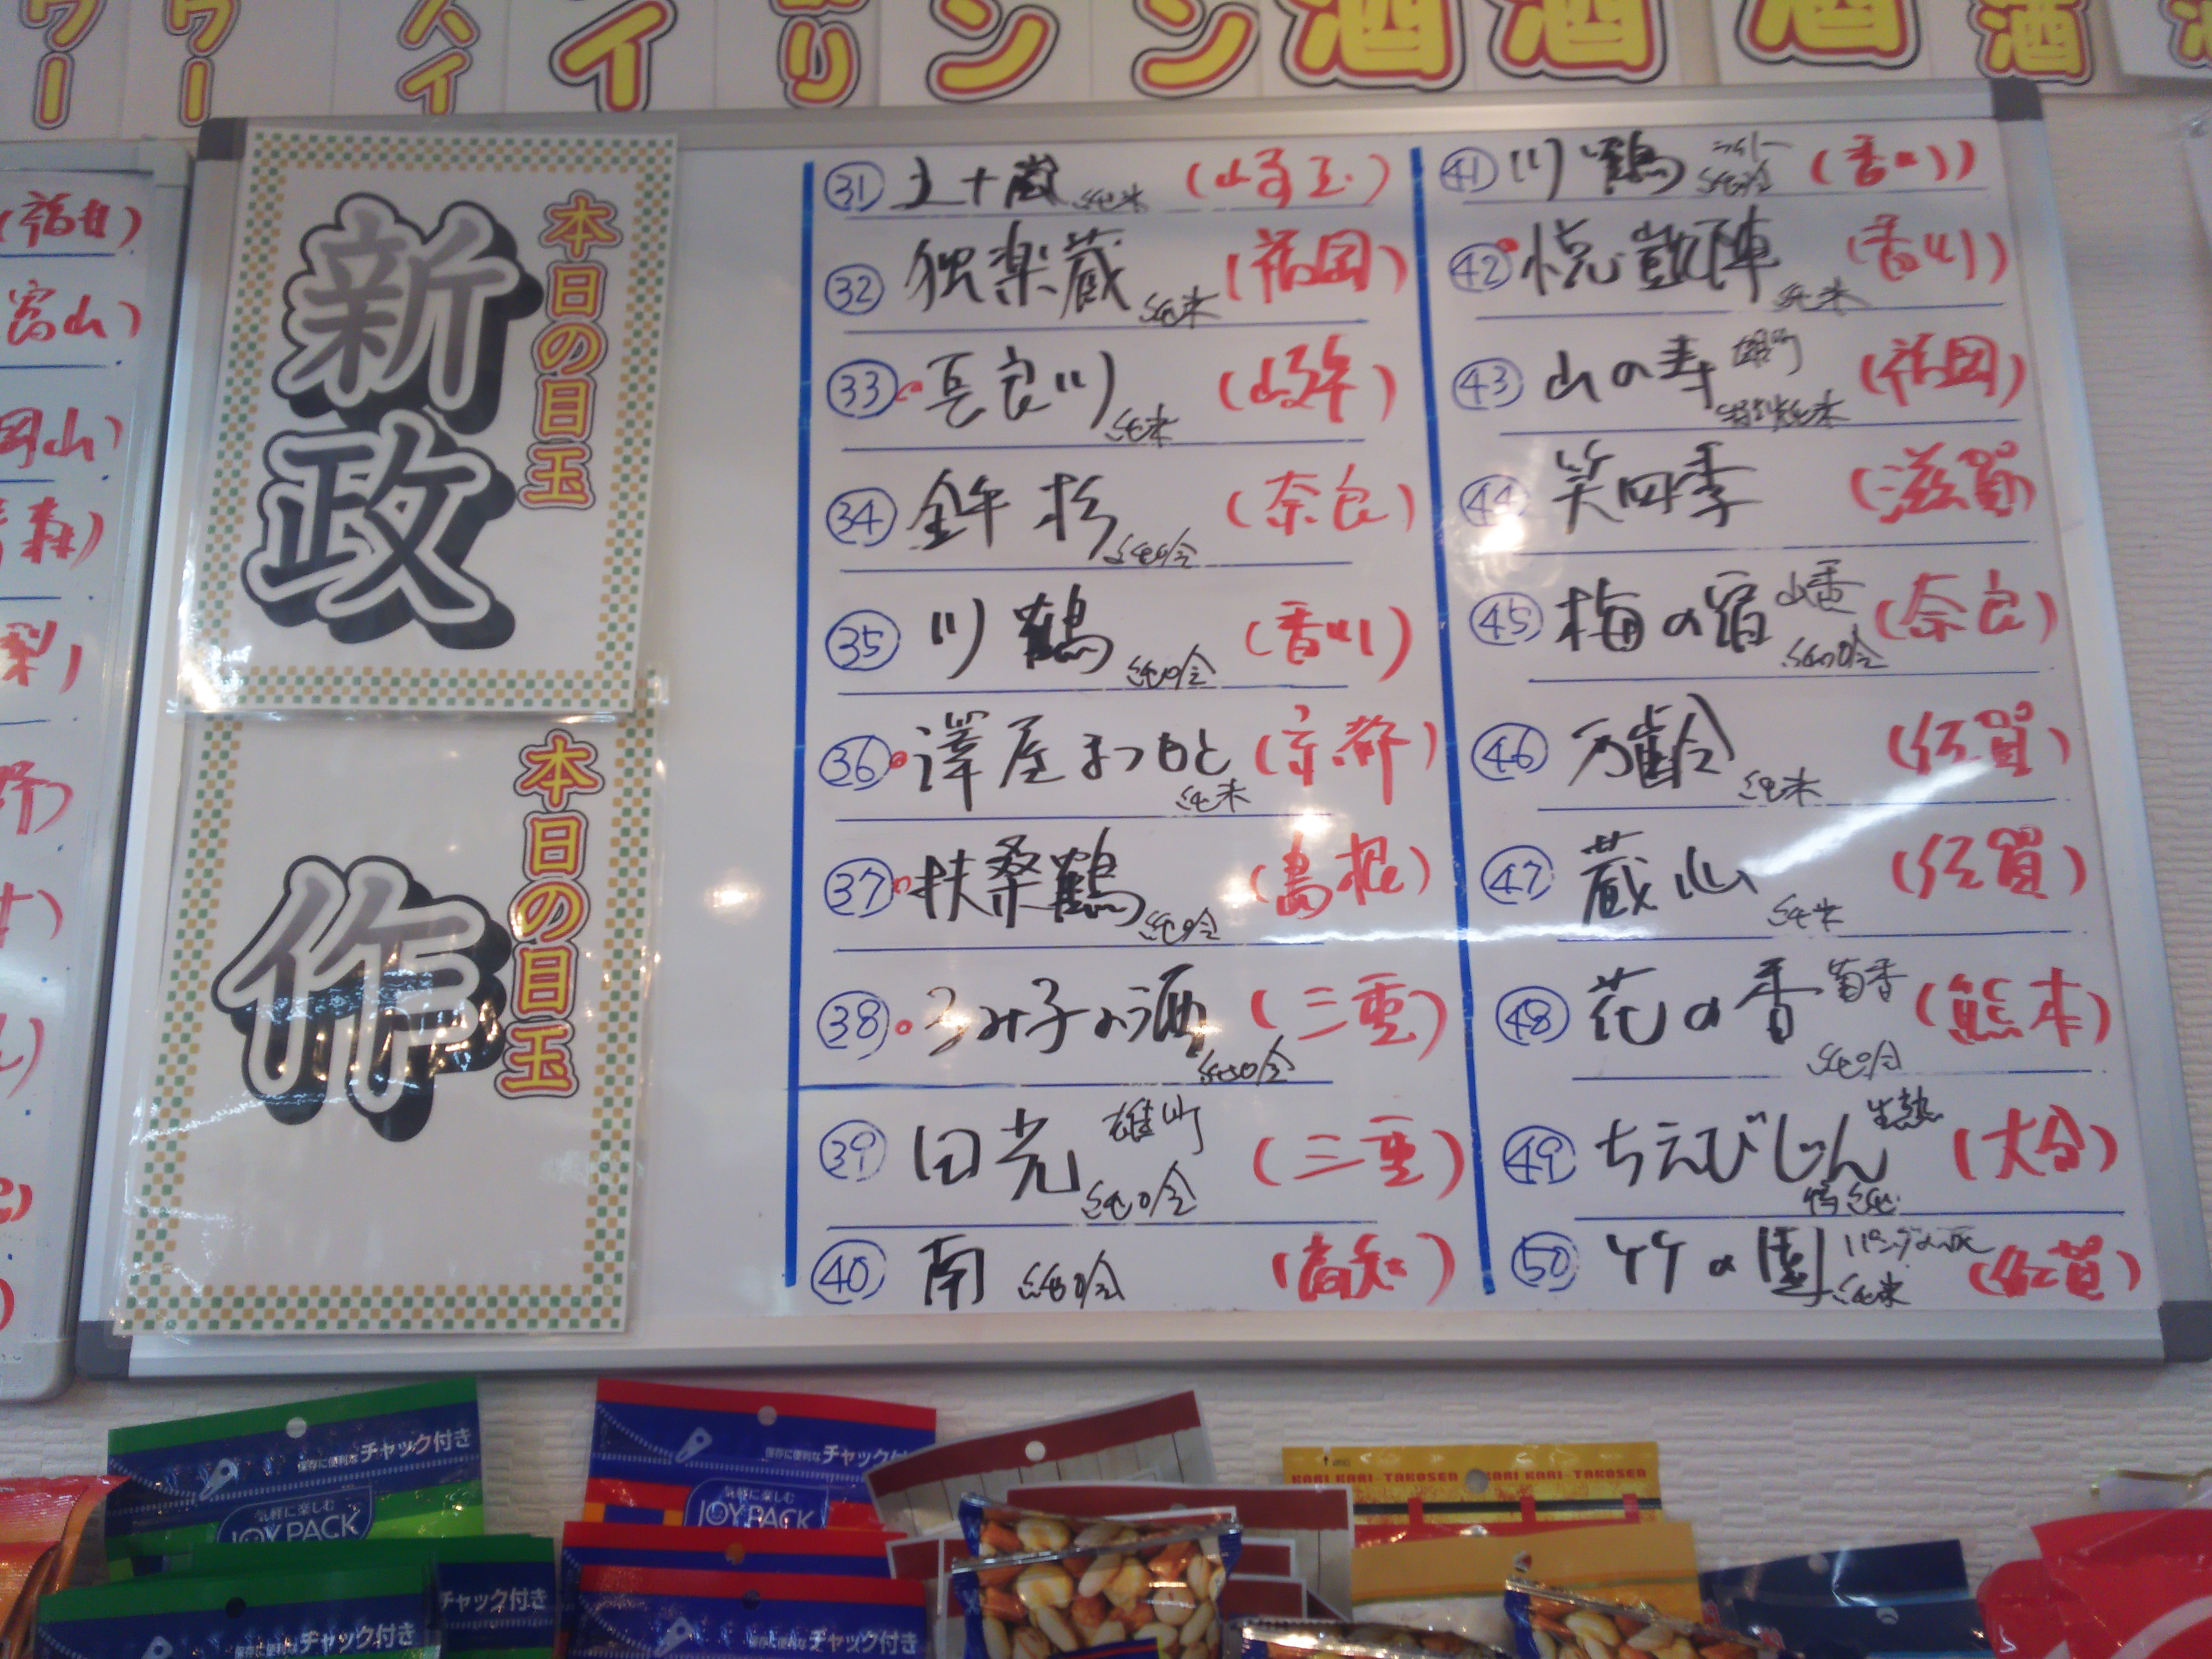 ワー
ワー
ハイ
イ
り
ン
ン
酒
酒
酒
酒
(福井)
富山)
岡山)
森)
梨)
野)
本日の目玉
新政
本日の目玉
作
31 五十嵐 純米 (埼玉)
32 独楽蔵 純米 (福岡)
33 長良川 純米 (岐阜)
34 鉾杉 純吟 (奈良)
35 川鶴 純吟 (香川)
36 澤屋まつもと 純米 (京都)
37 扶桑鶴 純吟 (島根)
38 るみ子の酒 純吟 (三重)
39 田光 雄町 純吟 (三重)
40 南 純吟 (高知)
41 川鶴 純吟 (香川)
42 悦凱陣 純米 (香川)
43 山の寿 雄町 特別純米 (福岡)
44 笑四季 (滋賀)
45 梅の宿 山香 純吟 (奈良)
46 万齢 純米 (佐賀)
47 蔵心 純米 (佐賀)
48 花の香 菊香 純吟 (熊本)
49 ちえびじん 生熟 特純 (大分)
50 竹の園 純米 (佐賀)
保存に便利なチャック付き
気軽に楽しむ
JOY PACK
保存に便利なチャック付き
気軽に楽しむ
JOY PACK
KARI KARI-TAKOSEN KARI KARI-TAKOSEN
チャック付き
保存に便利なチャック付き
保存に便利なチャック付き